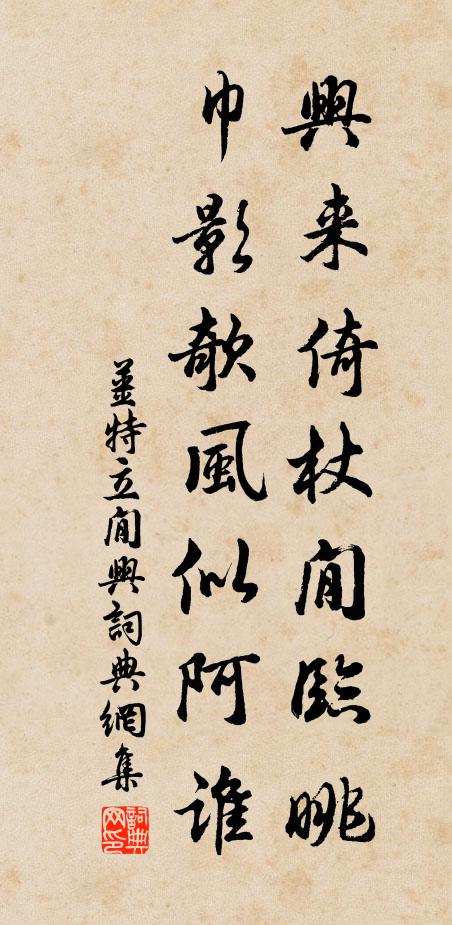 興来倚杖閒臨眺
巾影欹風似阿誰
姜特立閒興詞典網集
詞典网印